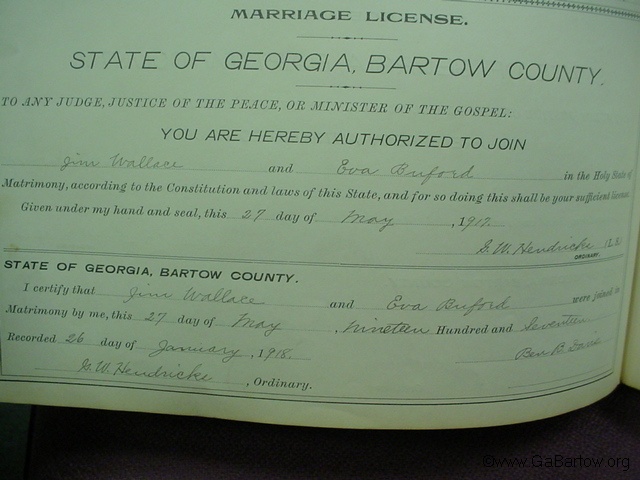 MARRIAGE LICENSE.
STATE OF GEORGIA, BARTOW COUNTY.
TO ANY JUDGE, JUSTICE OF THE PEACE, OR MINISTER OF THE GOSPEL:
YOU ARE HEREBY AUTHORIZED TO JOIN
Jim Wallace and Eva Buford in the Holy State of
Matrimony, according to the Constitution and laws of this State, and for so doing this shall be your sufficient license.
Given under my hand and seal, this 27 day of May, 1917.
G. W. Hendricks (L. S.)
ORDINARY.
STATE OF GEORGIA, BARTOW COUNTY.
I certify that Jim Wallace and Eva Buford were joined in
Matrimony by me, this 27 day of May, Nineteen Hundred and Seventeen
Recorded 26 day of January, 1918. Ben B.
G. W. Hendricks, Ordinary.
©www.GaBartow.org